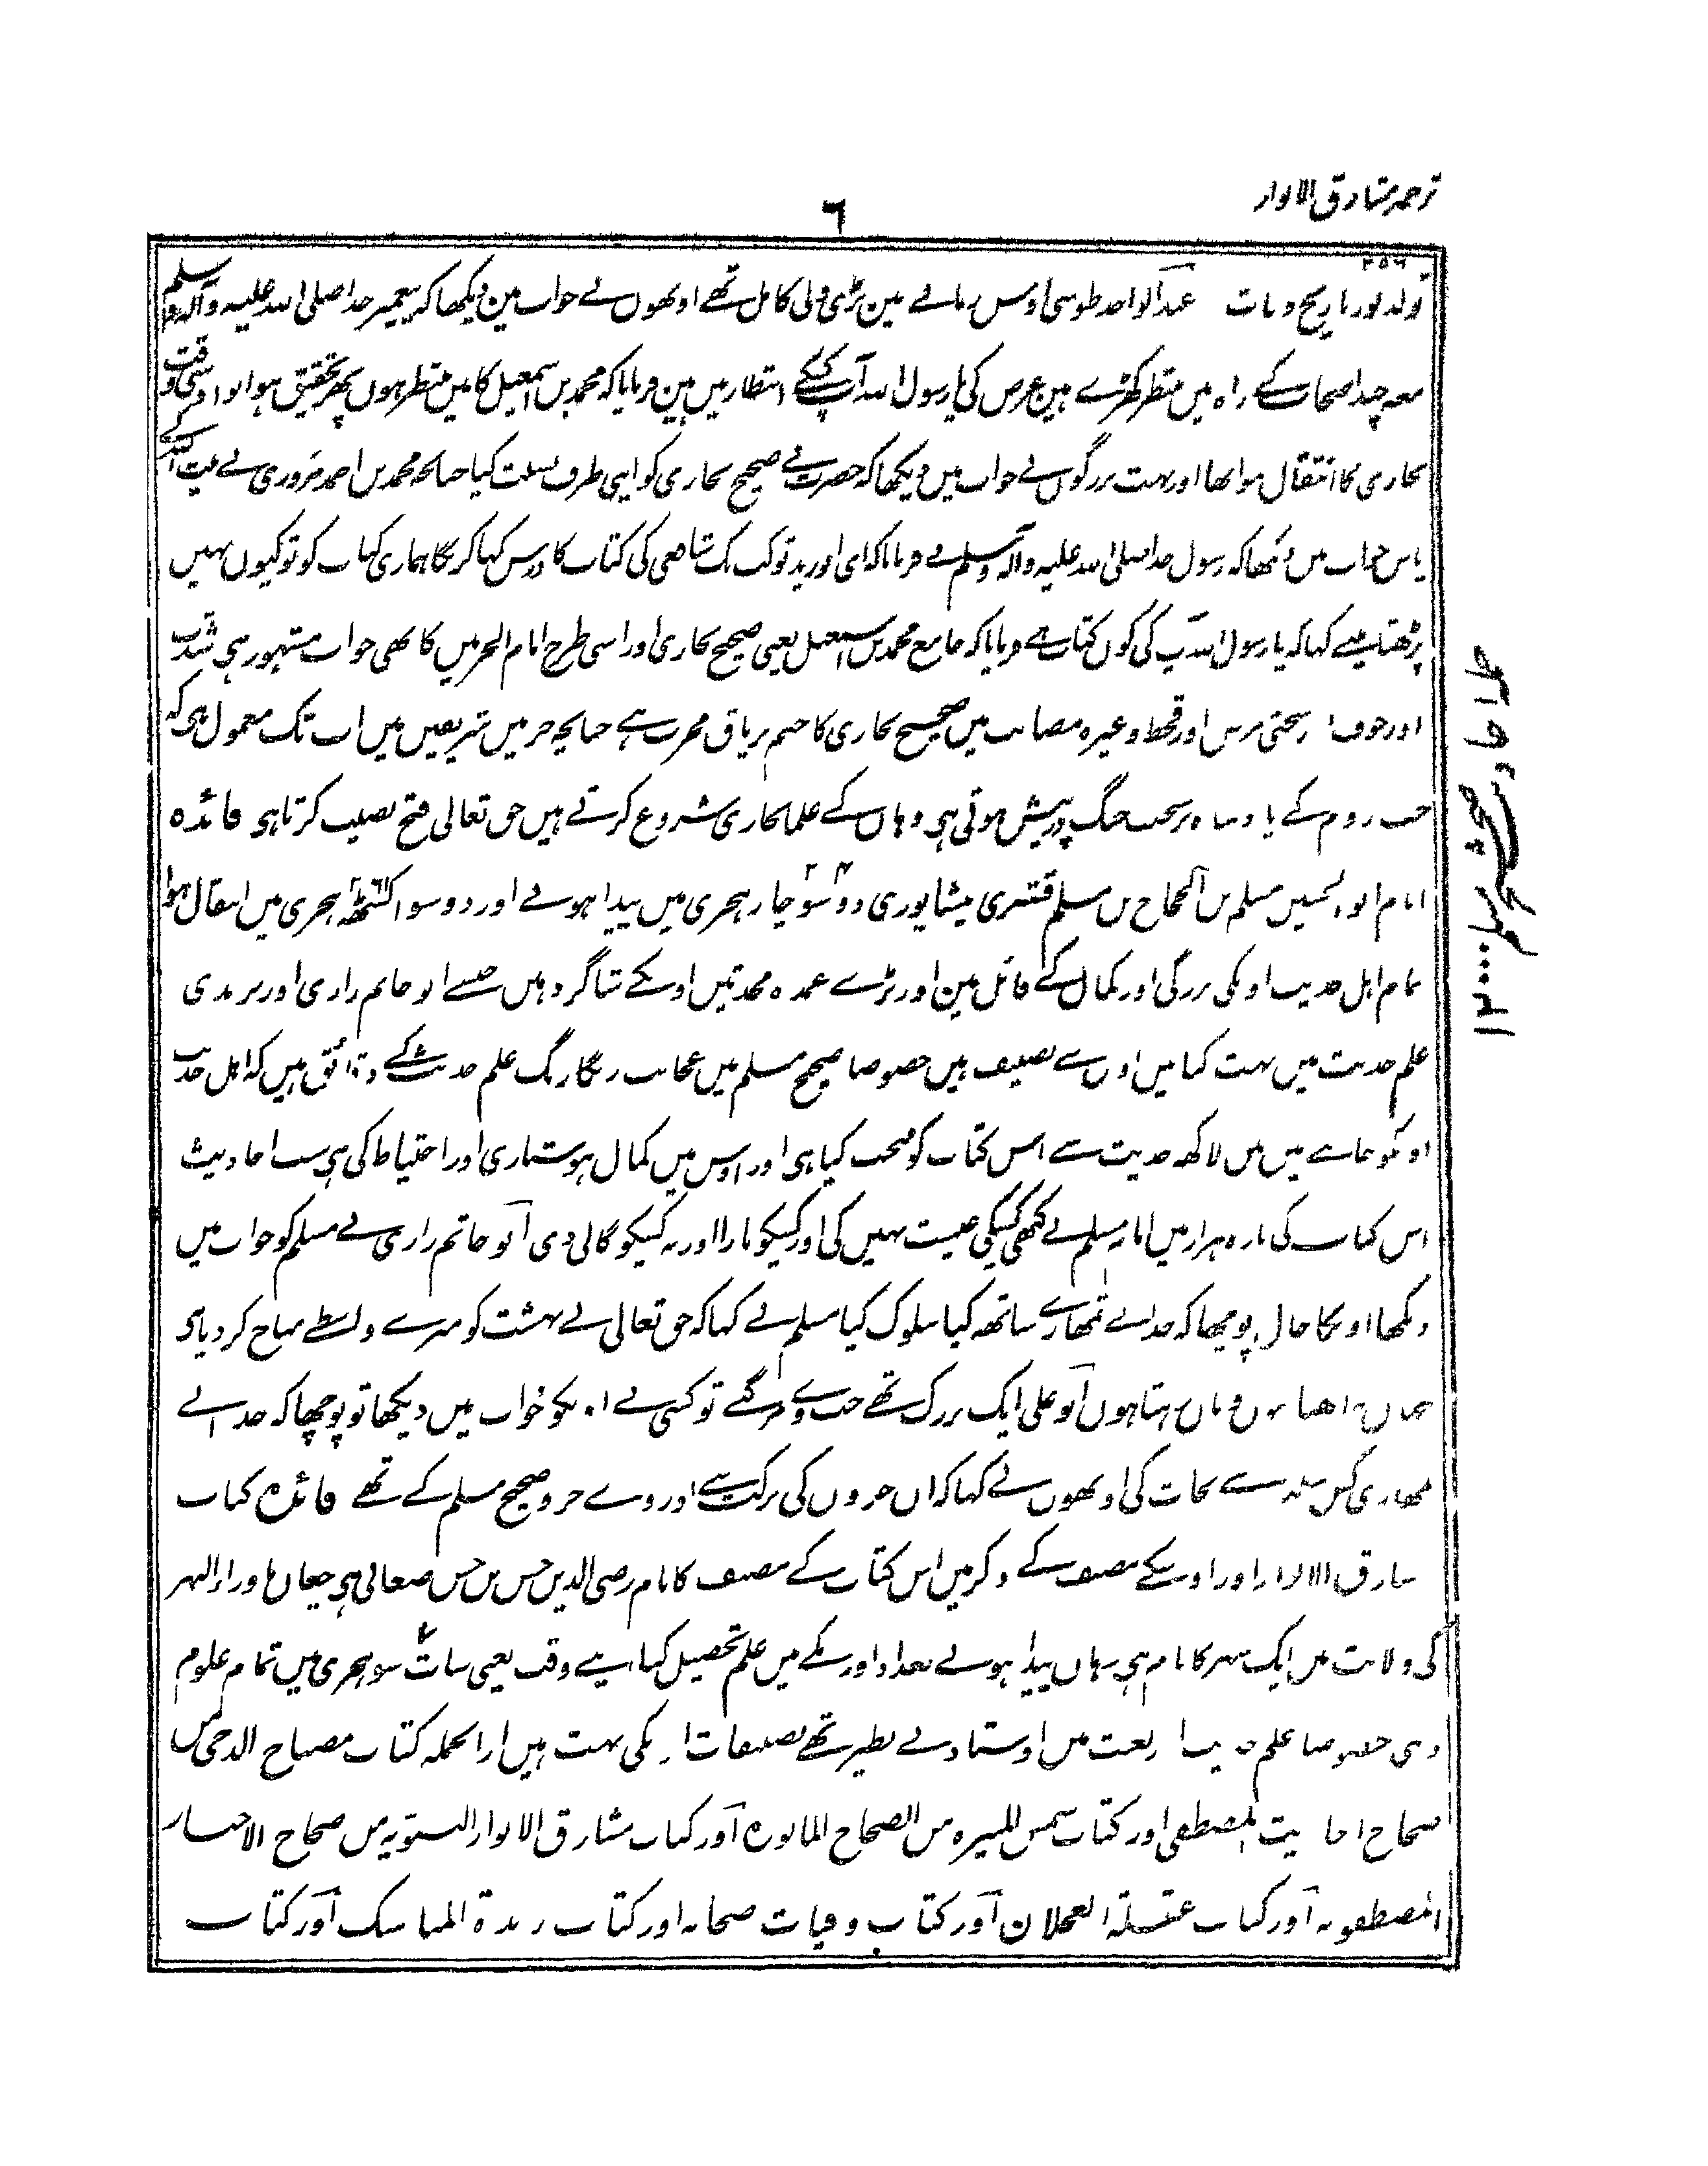 ترجمہ مشارق الانوار
٦
٢٥٦
تولد نور تاریخ وفات عبدالواحد طوسی اوس زمانے مین بڑی ولی کامل تھے اونھوں نے خواب مین دیکھا کہ پیغمبر خدا صلی اللہ علیہ وآلہ وسلم
معہ چند اصحاب کے راہ میں منتظر کھڑے ہین عرض کی یا رسول اللہ آپ کسکے انتظار میں ہین فرمایا کہ محمد بن اسمعیل کا میں منتظر ہوں پھر تحقیق ہوا تو اوسی وقت
بخاری کا انتقال ہوا تھا اور بہت بزرگوں نے خواب میں دیکھا کہ حضرت نے صحیح بخاری کو اپنی طرف نسبت کیا چنانچہ محمد بن احمد مروزی نے
خواب میں دیکھا کہ رسول خدا صلی اللہ علیہ وآلہ وسلم نے فرمایا کہ ای ابو زید تو کب تک شافعی کی کتاب کا درس کہا کریگا ہماری کتاب کو تو کیوں نہیں
پڑھتا مینے کہا کہ یا رسول اللہ آپ کی کون کتاب ہے فرمایا کہ جامع محمد بن اسمعیل یعنی صحیح بخاری اور اسی طرح امام الحرمین کا بھی خواب مشہور ہی شدت
اور خوف اور سختی مرض اور قحط وغیرہ مصائب میں صحیح بخاری کا ختم تریاق مجرب ہے چنانچہ حرمین شریفین میں اب تک معمول ہی کہ
جب روم کے بادشاہ پر سخت جنگ درپیش ہوتی ہی وہاں کے علما بخاری شروع کرتے ہیں حق تعالی فتح نصیب کرتا ہی فائدہ
امام ابو الحسین مسلم بن الحجاج بن مسلم قشیری نیشاپوری دو سو چار ہجری میں پیدا ہوئے اور دو سو اکسٹھ ہجری میں انتقال ہوا
تمام اہل حدیث اونکی بزرگی اور کمال کے قائل ہین اور بڑے عمدہ محدثین اونکے شاگرد ہیں جیسے ابو حاتم رازی اور ترمذی
علم حدیث میں بہت کتابیں اون سے تصنیف ہیں خصوصا صحیح مسلم میں عجائب رنگارنگ علم حدیث کے دقائق ہیں کہ اہل حدیث
اونکو جانتے ہیں تین لاکھ حدیث سے اس کتاب کو منتخب کیا ہی اور اوس میں کمال ہوشیاری اور احتیاط کی ہی سب احادیث
اس کتاب کی بارہ ہزار ہیں امام مسلم نے کبھی کسیکی غیبت نہیں کی اور کسیکو مارا اور نہ کسیکو گالی دی ابو حاتم رازی نے مسلم کو خواب میں
دیکھا اونکا حال پوچھا کہ خدا نے تمھارے ساتھ کیا سلوک کیا مسلم نے کہا کہ حق تعالی نے بہشت کو میرے واسطے مباح کر دیا ہی
جہاں چاہتا ہوں وہاں رہتا ہوں ابو علی ایک بزرگ تھے جب وے مر گئے تو کسی نے اونکو خواب میں دیکھا تو پوچھا کہ خدا نے
تمھاری کس سبب سے نجات کی اونھوں نے کہا کہ ان جزوں کی برکت سے اور وے جزو صحیح مسلم کے تھے فائدہ کتاب
مشارق الانوار اور اوسکے مصنف کے ذکر میں اس کتاب کے مصنف کا نام رضی الدین حسن بن حسن صغانی ہی چغان ماوراء النہر
کی ولایت میں ایک شہر کا نام ہی یہاں پیدا ہوئے بغداد اور مکے میں علم تحصیل کیا اپنے وقت یعنی سات سو ہجری میں تمام علوم
دینی خصوصا علم حدیث اور لغت میں اوستاد بے نظیر تھے تصنیفات اونکی بہت ہیں ازانجملہ کتاب مصباح الدجی من
صحاح احادیث المصطفی اور کتاب شمس المنیرہ من الصحاح الماثورہ اور کتاب مشارق الانوار النبویہ من صحاح الاخبار
المصطفویہ اور کتاب عقلة العجلان اور کتاب وفیات صحابہ اور کتاب زبدة المناسک اور کتاب